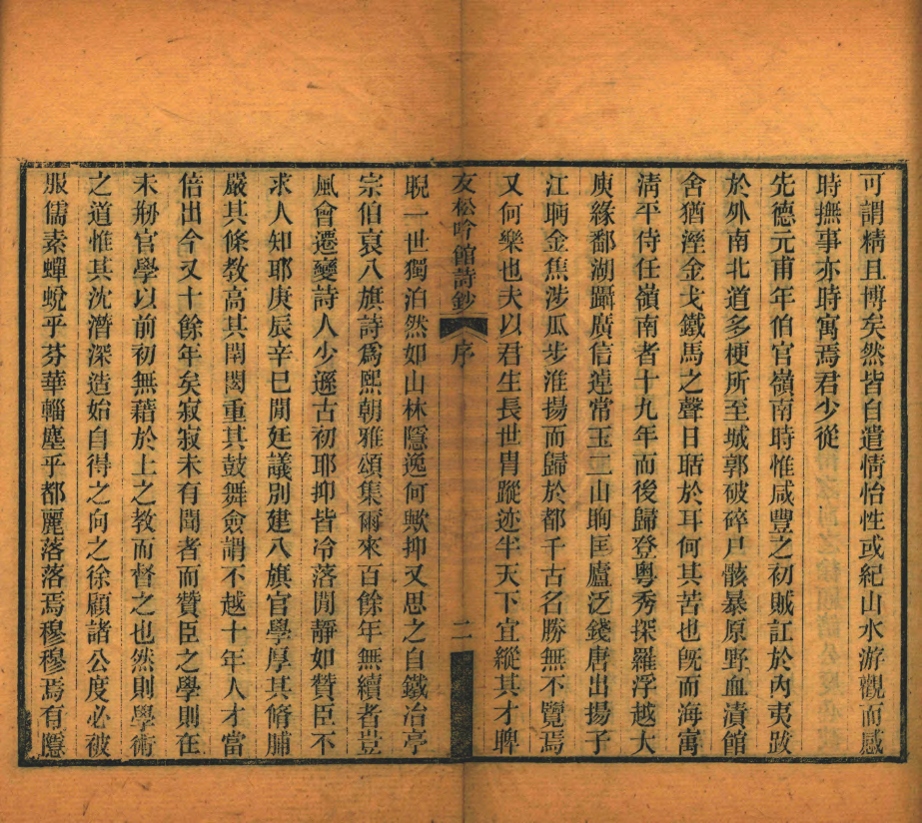 可謂精且博矣然皆自遣情怡性或紀山水游觀而感
時撫事亦時寓焉君少從
先德元甫年伯官嶺南時惟咸豐之初賊訌於內夷跋
於外南北道多梗所至城郭破碎尸骸暴原野血漬館
舍猶溼金戈鐵馬之聲日聒於耳何其苦也旣而海寓
清平侍任嶺南者十九年而後歸登粵秀探羅浮越大
庾緣鄱湖躡廣信逴常玉二山眴匡廬泛錢唐出揚子
江眄金焦涉瓜步淮揚而歸於都千古名勝無不覽焉
又何樂也夫以君生長世冑蹤迹半天下宜縱其才睥
友松吟館詩鈔 序 二
睨一世獨泊然如山林隱逸何歟抑又思之自鐵冶亭
宗伯裒八旗詩爲熙朝雅頌集爾來百餘年無續者豈
風會遷變詩人少遜古初耶抑皆冷落閒靜如贊臣不
求人知耶庚辰辛巳閒廷議別建八旗官學厚其脩脯
嚴其條敎高其閈閎重其鼓舞僉謂不越十年人才當
倍出今又十餘年矣寂寂未有聞者而贊臣之學則在
未剙官學以前初無藉於上之教而督之也然則學術
之道惟其沈潛深造始自得之向之徐顧諸公度必被
服儒素蟬蛻乎芬華輜塵乎都麗落落焉穆穆焉有隱